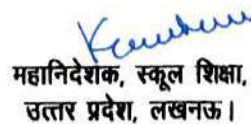 महानिदेशक, स्कूल शिक्षा,
उत्तर प्रदेश, लखनऊ।